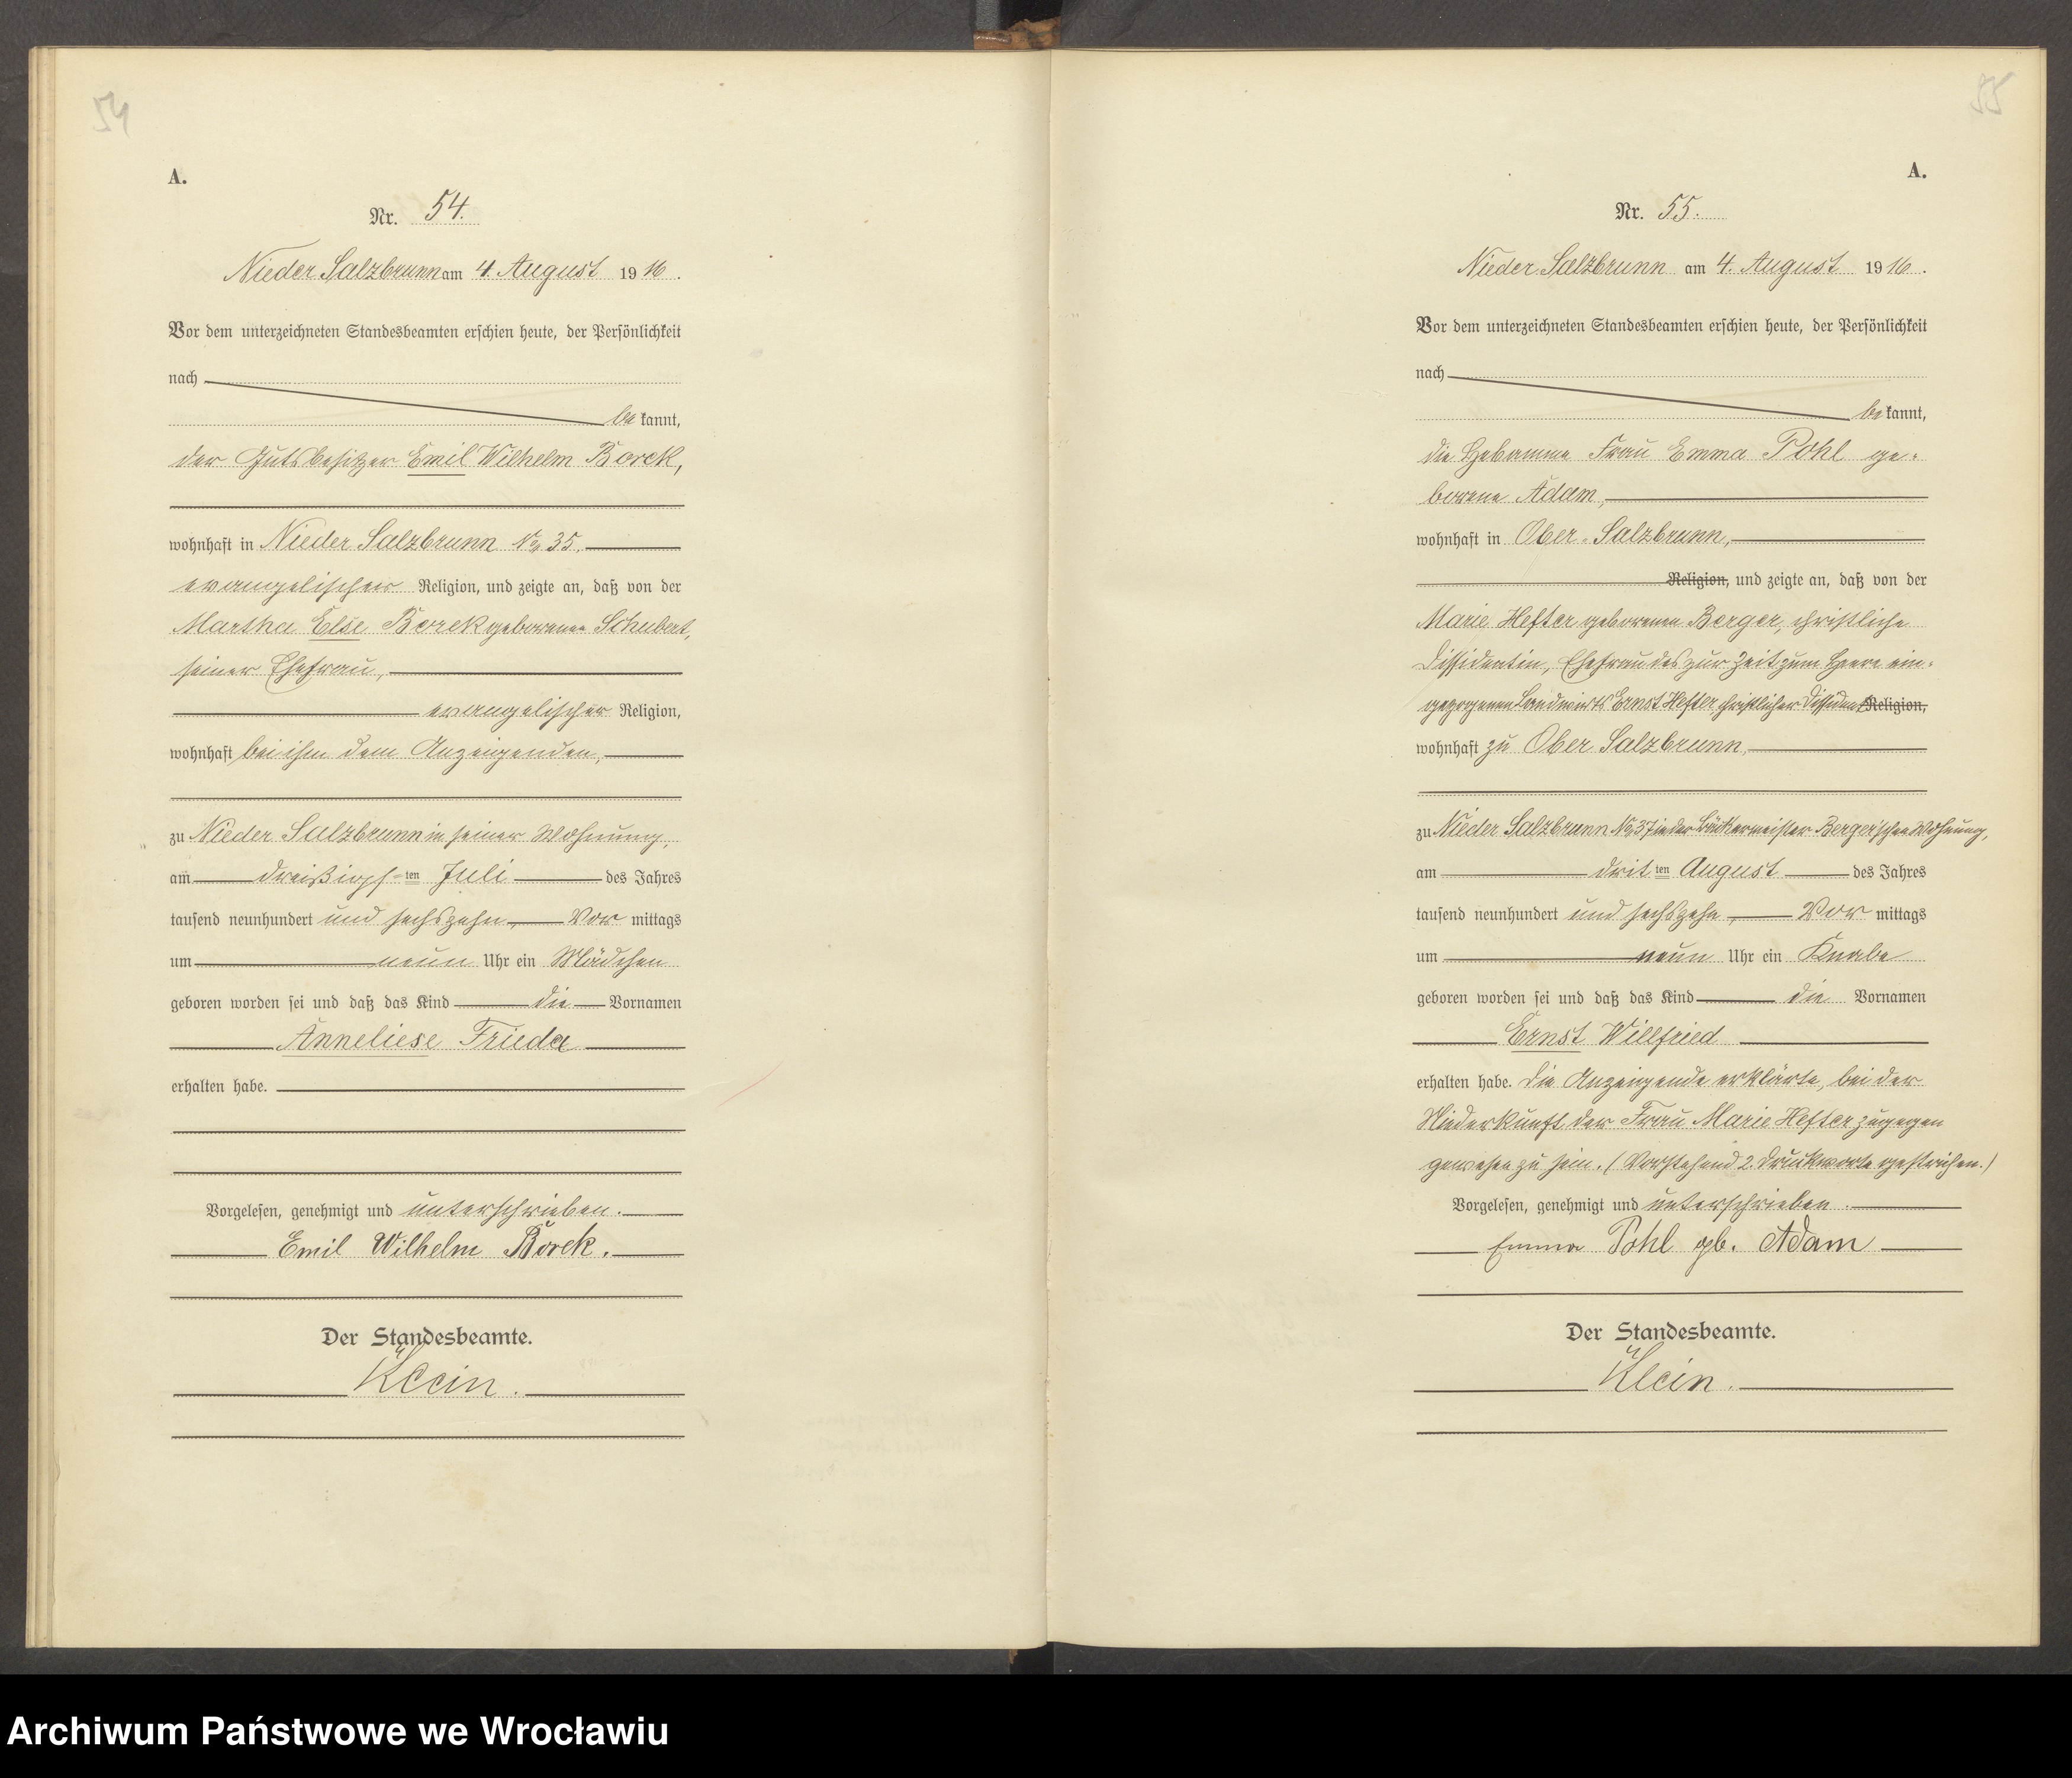 54
A.
Nr. 54.
Nieder Salzbrunn am 4. August 1916.
Vor dem unterzeichneten Standesbeamten erschien heute, der Persönlichkeit
nach
bekannt,
der Gutsbesitzer Emil Wilhelm Borek,
wohnhaft in Nieder Salzbrunn No 35.
evangelischer Religion, und zeigte an, daß von der
Martha Else Borek geborenen Schubert,
seiner Ehefrau,
evangelischer Religion,
wohnhaft bei ihm dem Anzeigenden,
zu Nieder Salzbrunn in seiner Wohnung,
am dreißigsten Juli des Jahres
tausend neunhundert und sechszehn, Vormittags
um neun Uhr ein Mädchen
geboren worden sei und daß das Kind die Vornamen
Anneliese Frieda
erhalten habe.
Vorgelesen, genehmigt und unterschrieben.
Emil Wilhelm Borek.
Der Standesbeamte.
Klein.
55
A.
Nr. 55.
Nieder Salzbrunn am 4. August 1916.
Vor dem unterzeichneten Standesbeamten erschien heute, der Persönlichkeit
nach
bekannt,
die Hebamme Frau Emma Pohl ge-
borene Adam,
wohnhaft in Ober-Salzbrunn,
Religion, und zeigte an, daß von der
Marie Hefter geborenen Berger, christliche
Dissidentin, Ehefrau des zur Zeit zum Heere ein-
gezogenen Landwirts Ernst Hefter christlicher Dissident Religion,
wohnhaft zu Ober Salzbrunn,
zu Nieder Salzbrunn No 37 in der Bäckermeister Berger'schen Wohnung,
am dritten August des Jahres
tausend neunhundert und sechszehn, Vormittags
um neun Uhr ein Knabe
geboren worden sei und daß das Kind die Vornamen
Ernst Willfried
erhalten habe. Die Anzeigende erklärte, bei der
Niederkunft der Frau Marie Hefter zugegen
gewesen zu sein. (Vorstehend 2. Druckworte gestrichen.)
Vorgelesen, genehmigt und unterschrieben.
Emma Pohl gb. Adam
Der Standesbeamte.
Klein.
Archiwum Państwowe we Wrocławiu